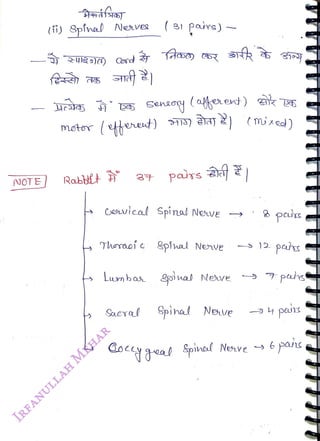 मेरूतंत्रिका
(ii) Spinal Nerves (31 pairs) —
— ये स्पाइनल cord से निकल कर शरीर के अन्य
हिस्सो तक जाती हैं।
— प्रत्येक में एक Sensory (afferent) और एक
motor (efferent) भाग होता है। (mixed)
NOTE Rabbit में 37 pairs होती हैं।
→ Cervical Spinal Nerve → 8 pairs
→ Thoracic Spinal Nerve → 12 pairs
→ Lumbar Spinal Nerve → 7 pairs
→ Sacral Spinal Nerve → 4 pairs
→ Coccygeal Spinal Nerve → 6 pairs
IRFANULLAH MAZHAR